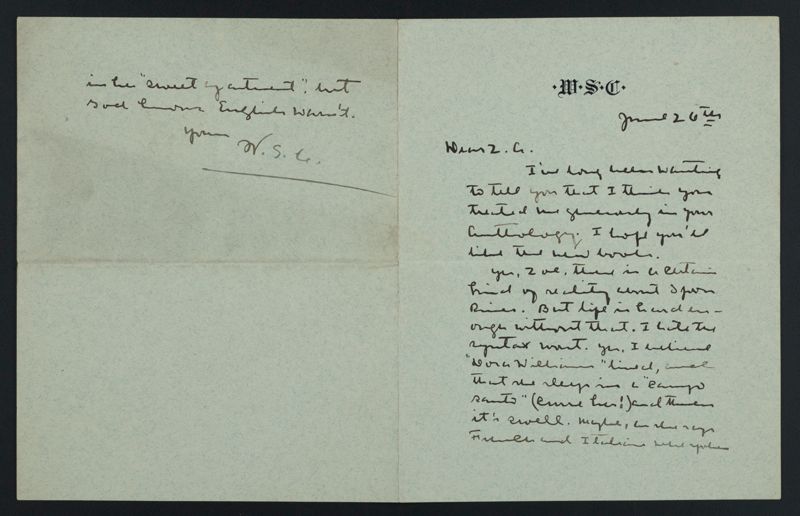 ·W·S·C·
June 26th
Dear Z. A.
I've long been wanting
to tell you that I think you
treated me generously in your
Anthology. I hope you'll
like the new book.
Yes, Zoë, there is a certain
kind of reality about Spoon
River. But life is hard en-
ough without that. I hate the
syntax worst. Yes, I believe
"Dora Williams" lived, and
that she sleeps in a "Campo
Santo" (curse her!) and thinks
it's swell. Maybe, as she says
French and Italian were spoken
in her "sweet apartment", but
God knows English wasn't.
Yours
W. S. C.